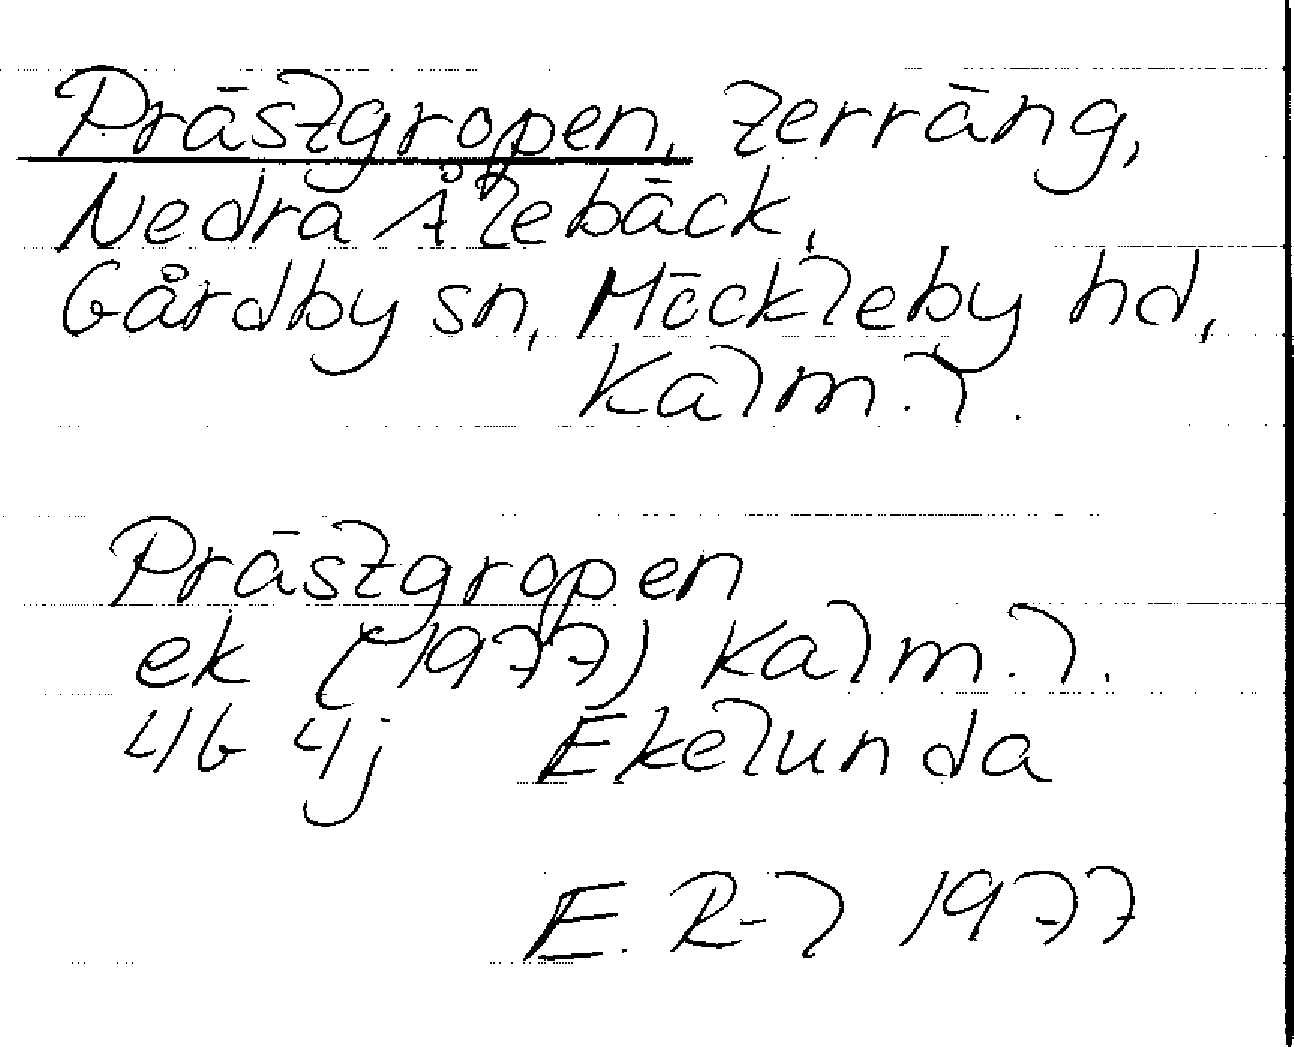 Prästgropen, terräng,
Nedra Ålebäck,
Gårdby sn, Möckleby hd,
Kalm. l.
Prästgropen
ek (1977) Kalm. l.
4G 4j Ekelunda
E. R-l 1977